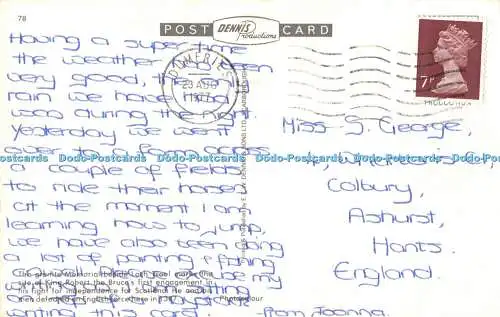 78
POST CARD
DENNIS
Productions
DUMFRIES
23 AUG
1977
7P
Having a super time
the weather been
very good, the only
rain we have had
was during the night.
Yesterday we went
over to a farm across
a couple of fields
to ride their horses
at the moment I am
learning how to jump,
we have also been doing
a lot of painting & fishing
be my
writing this card.
from Joanna.
Miss S. George,
Colbury,
Ashurst,
Hants.
England.
The granite Memorial beside Loch Trool marks the
site of King Robert the Bruce's first engagement in
his fight for independence for Scotland. He and his
men defeated an English force here in
Photocolour
Dodo-Postcards Dodo-Postcards Dodo-Postcards Dodo-Postcards Dodo-Postcards